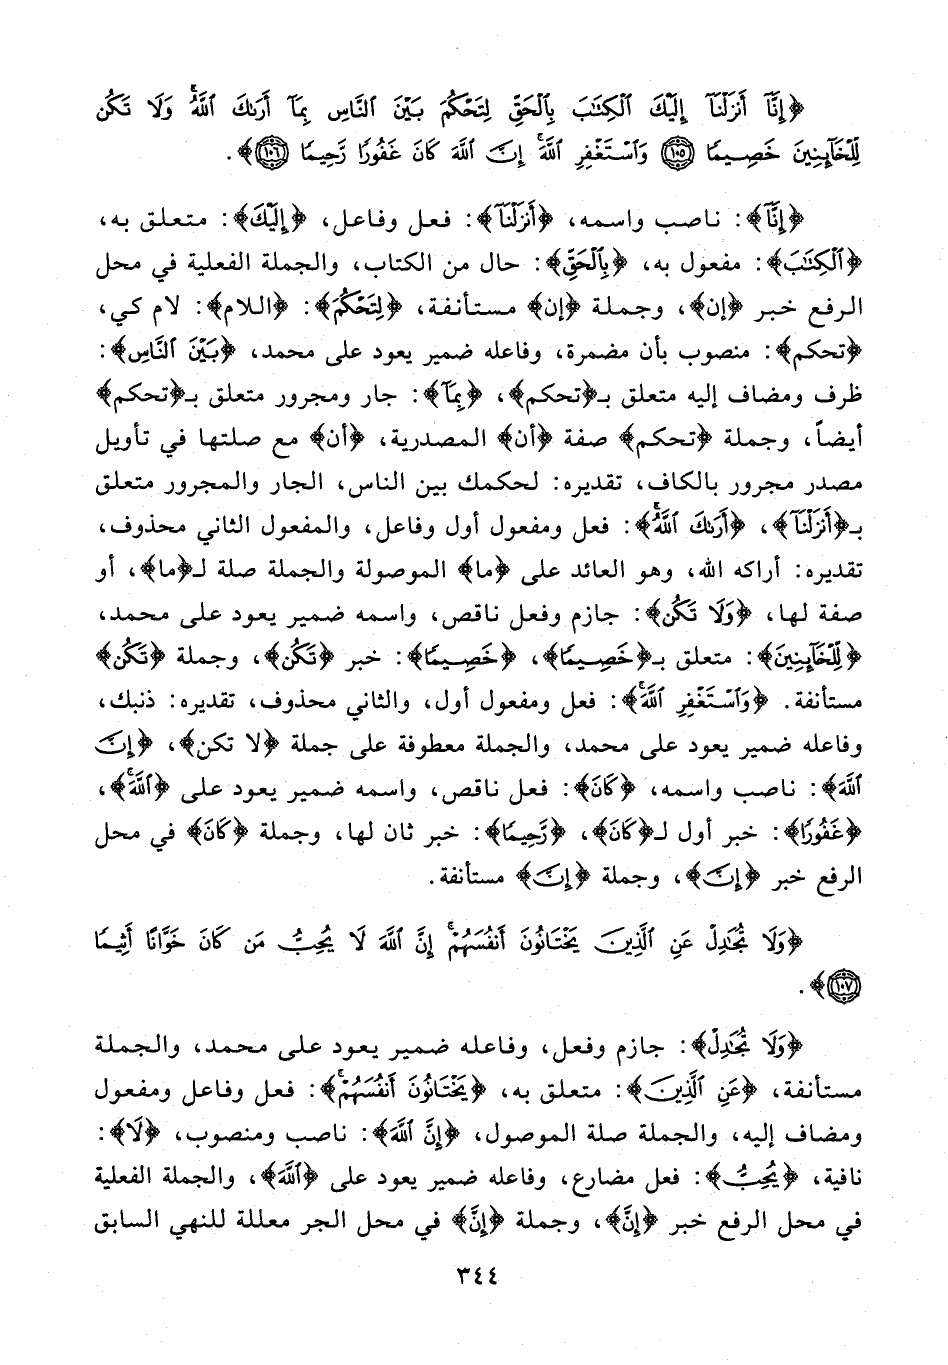 ﴿إِنَّآ أَنزَلْنَآ إِلَيْكَ ٱلْكِتَٰبَ بِٱلْحَقِّ لِتَحْكُمَ بَيْنَ ٱلنَّاسِ بِمَآ أَرَىٰكَ ٱللَّهُ ۚ وَلَا تَكُن
لِّلْخَآئِنِينَ خَصِيمًا ۝١٠٥ وَٱسْتَغْفِرِ ٱللَّهَ ۖ إِنَّ ٱللَّهَ كَانَ غَفُورًا رَّحِيمًا ۝١٠٦﴾.
﴿إِنَّآ﴾: ناصب واسمه، ﴿أَنزَلْنَآ﴾: فعل وفاعل، ﴿إِلَيْكَ﴾: متعلق به،
﴿ٱلْكِتَٰبَ﴾: مفعول به، ﴿بِٱلْحَقِّ﴾: حال من الكتاب، والجملة الفعلية في محل
الرفع خبر ﴿إن﴾، وجملة ﴿إن﴾ مستأنفة، ﴿لِتَحْكُمَ﴾: ﴿اللام﴾: لام كي،
﴿تحكم﴾: منصوب بأن مضمرة، وفاعله ضمير يعود على محمد، ﴿بَيْنَ ٱلنَّاسِ﴾:
ظرف ومضاف إليه متعلق بـ﴿تحكم﴾، ﴿بِمَآ﴾: جار ومجرور متعلق بـ﴿تحكم﴾
أيضاً، وجملة ﴿تحكم﴾ صفة ﴿أن﴾ المصدرية، ﴿أن﴾ مع صلتها في تأويل
مصدر مجرور بالكاف، تقديره: لحكمك بين الناس، الجار والمجرور متعلق
بـ﴿أَنزَلْنَآ﴾، ﴿أَرَىٰكَ ٱللَّهُ ۚ﴾: فعل ومفعول أول وفاعل، والمفعول الثاني محذوف،
تقديره: أراكه الله، وهو العائد على ﴿ما﴾ الموصولة والجملة صلة لـ﴿ما﴾، أو
صفة لها، ﴿وَلَا تَكُن﴾: جازم وفعل ناقص، واسمه ضمير يعود على محمد،
﴿لِّلْخَآئِنِينَ﴾: متعلق بـ﴿خَصِيمًا﴾، ﴿خَصِيمًا﴾: خبر ﴿تَكُن﴾، وجملة ﴿تَكُن﴾
مستأنفة. ﴿وَٱسْتَغْفِرِ ٱللَّهَ ۖ﴾: فعل ومفعول أول، والثاني محذوف، تقديره: ذنبك،
وفاعله ضمير يعود على محمد، والجملة معطوفة على جملة ﴿لا تكن﴾، ﴿إِنَّ
ٱللَّهَ﴾: ناصب واسمه، ﴿كَانَ﴾: فعل ناقص، واسمه ضمير يعود على ﴿ٱللَّهَ ۖ﴾،
﴿غَفُورًا﴾: خبر أول لـ﴿كَانَ﴾، ﴿رَّحِيمًا﴾: خبر ثان لها، وجملة ﴿كَانَ﴾ في محل
الرفع خبر ﴿إِنَّ﴾، وجملة ﴿إِنَّ﴾ مستأنفة.
﴿وَلَا تُجَٰدِلْ عَنِ ٱلَّذِينَ يَخْتَانُونَ أَنفُسَهُمْ ۚ إِنَّ ٱللَّهَ لَا يُحِبُّ مَن كَانَ خَوَّانًا أَثِيمًا
۝١٠٧﴾.
﴿وَلَا تُجَٰدِلْ﴾: جازم وفعل، وفاعله ضمير يعود على محمد، والجملة
مستأنفة، ﴿عَنِ ٱلَّذِينَ﴾: متعلق به، ﴿يَخْتَانُونَ أَنفُسَهُمْ ۚ﴾: فعل وفاعل ومفعول
ومضاف إليه، والجملة صلة الموصول، ﴿إِنَّ ٱللَّهَ﴾: ناصب ومنصوب، ﴿لَا﴾:
نافية، ﴿يُحِبُّ﴾: فعل مضارع، وفاعله ضمير يعود على ﴿ٱللَّهَ﴾، والجملة الفعلية
في محل الرفع خبر ﴿إِنَّ﴾، وجملة ﴿إِنَّ﴾ في محل الجر معللة للنهي السابق
٣٤٤